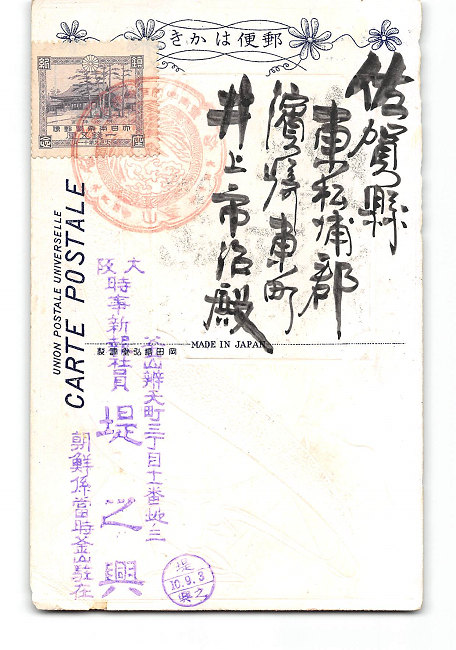 郵便はかき
佐賀縣
東松浦郡
濱崎東町
井上市治殿
UNION POSTALE UNIVERSELLE
CARTE POSTALE
MADE IN JAPAN
大阪
時事新報社員
堤之興
釜山辨天町三丁目十番地
朝鮮係當時釜山駐在
堤
10.9.3
之興